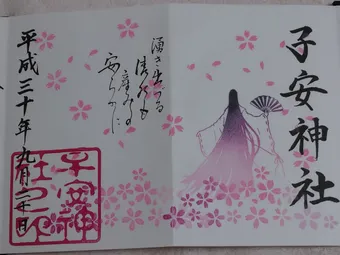 子安神社
湧き出づる
安らかに
平成三十年九月二十日
子安神
社之印